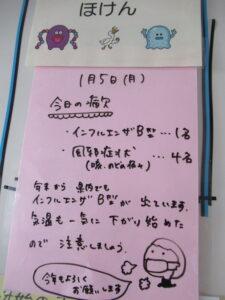 ほけん
1月5日(月)
今日の病欠
・インフルエンザB型…1名
・風邪症状…4名
(咳、のどの痛み)
年末から県内でも
インフルエンザB型が出ています。
気温も一気に下がり始めた
ので注意しましょう。
今年もよろしく
お願いします